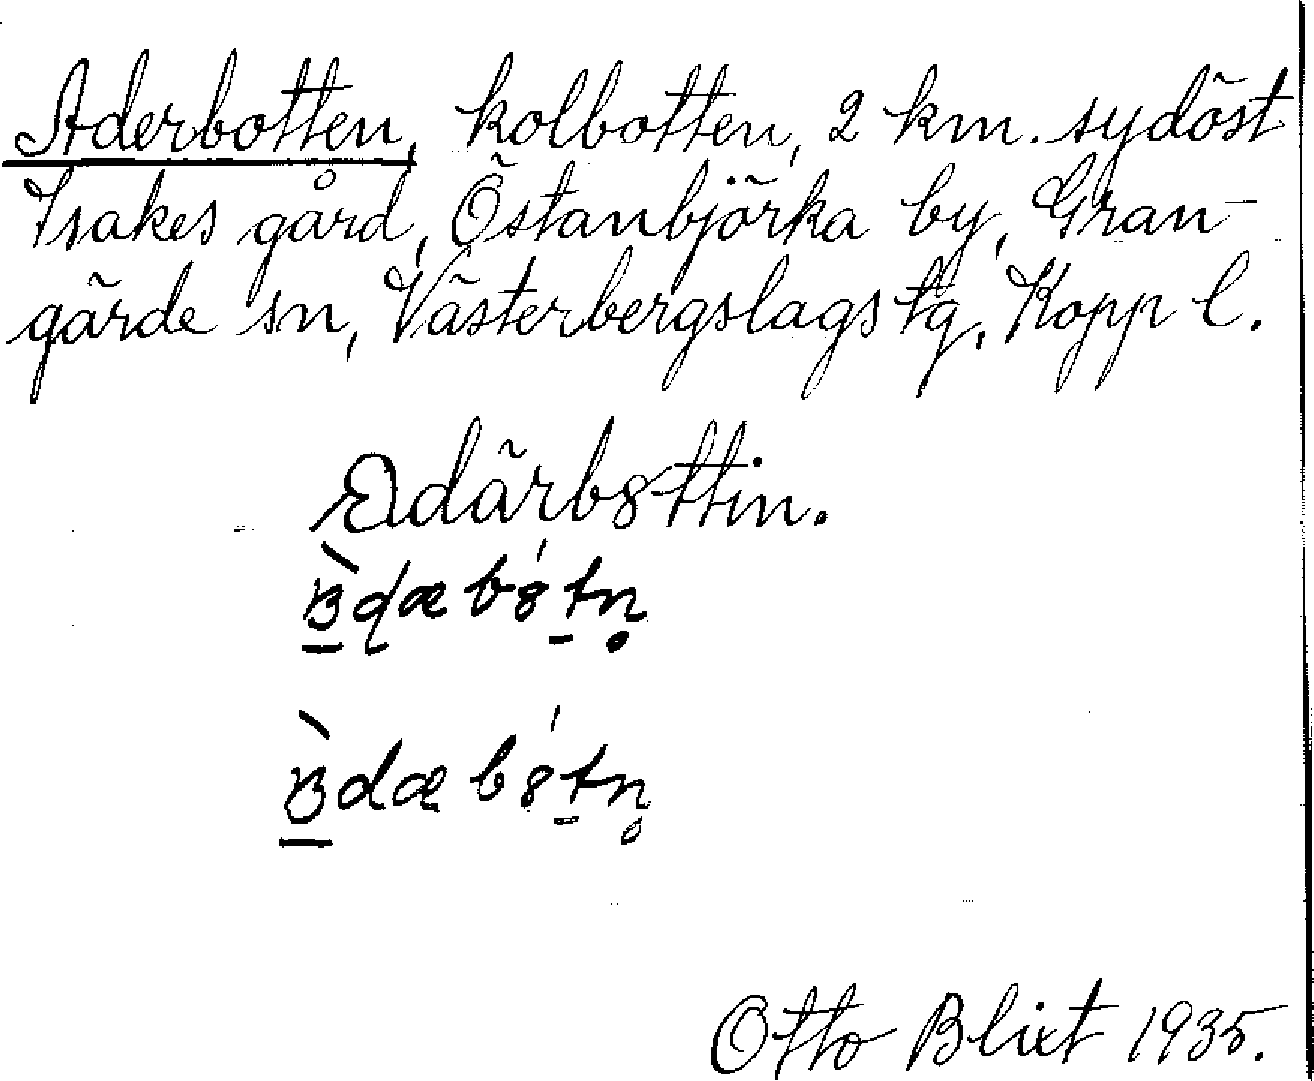 Aderbotten, kolbotten, 2 km. sydöst
Isakes gård, Östanbjörka by, Gran-
gärde sn, Västerbergslags tg, Kopp l.
Otto Blixt 1935.